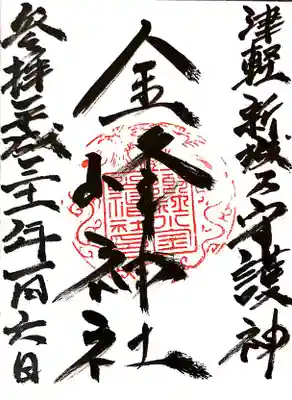 津軽新城乃守護神
金峰神社
参拝平成三十一年一月六日